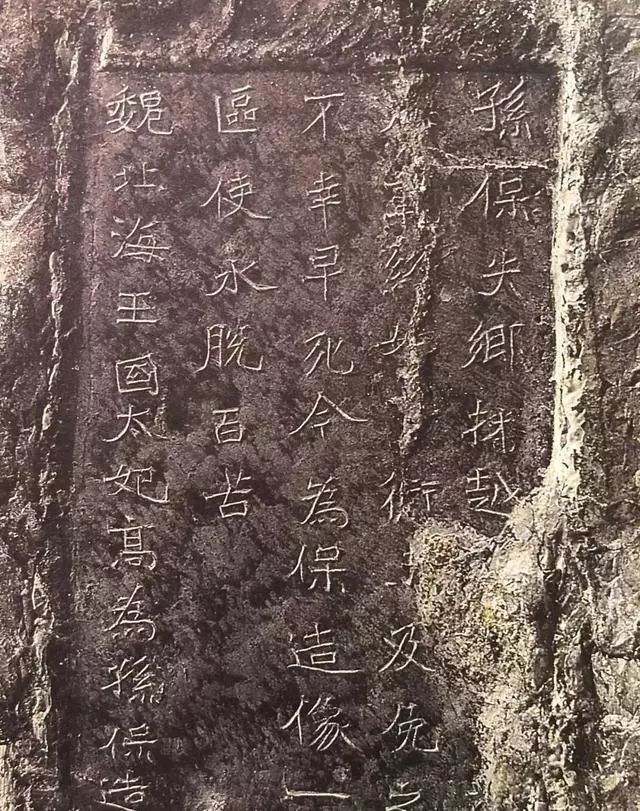 孫保失鄉
越
衍及免
不幸早死今為保造像一
區使永脫百苦
魏北海王國太妃高為孫保造